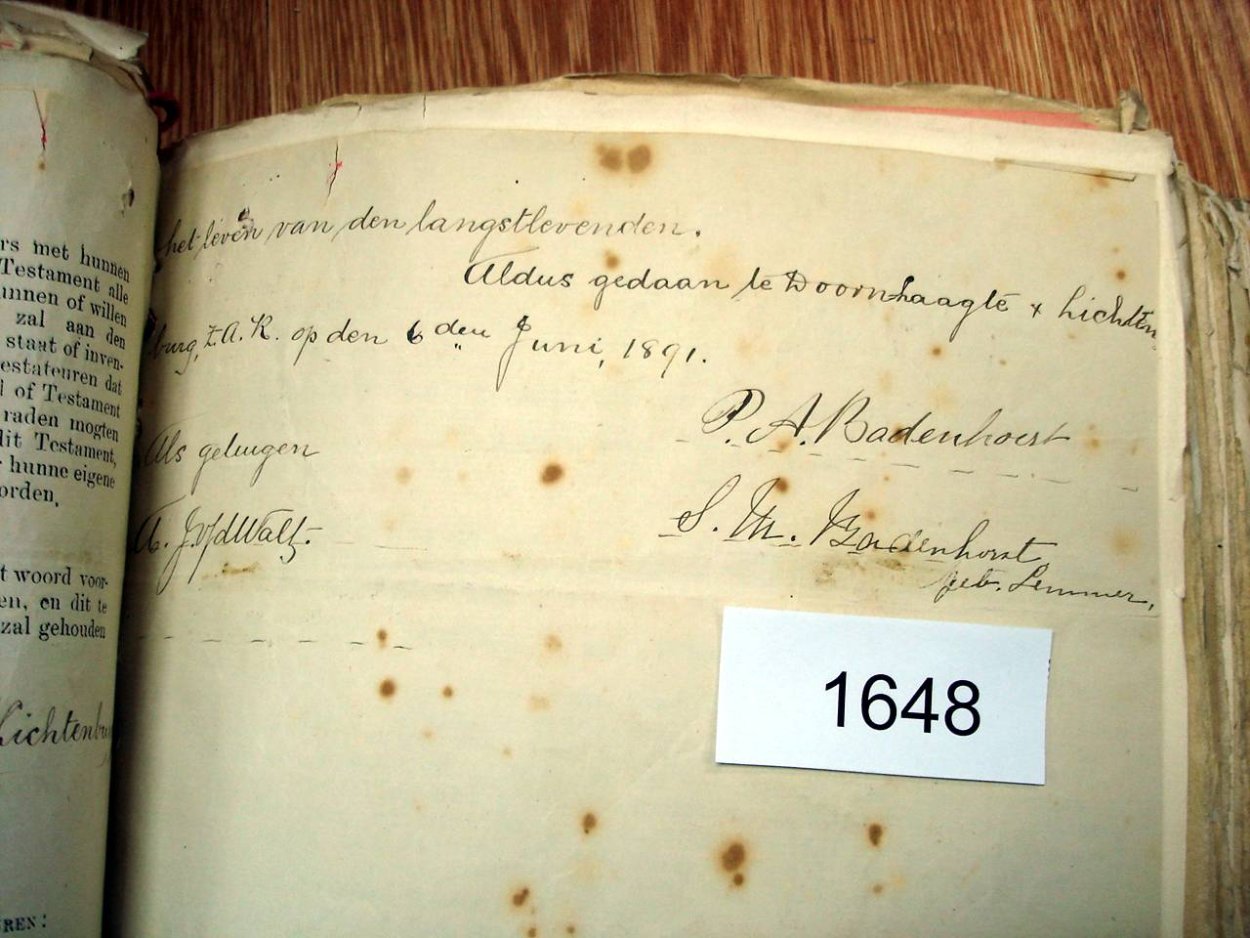 rs met hunnen
Testament alle
unnen of willen
zal aan den
staat of inven-
estateuren dat
l of Testament
raden mogten
dit Testament,
r hunne eigene
orden.
t woord voor-
en, en dit te
zal gehouden
Lichtenbu
REN:
het leven van den langstlevenden.
Aldus gedaan te Doornlaagte & Lichten
burg, Z.A.R. op den 6 den Juni, 1891.
P. A. Badenhorst
Als getuigen
S. M. Badenhorst
A. J. v/d Walt.
geb. Lemmer,
1648